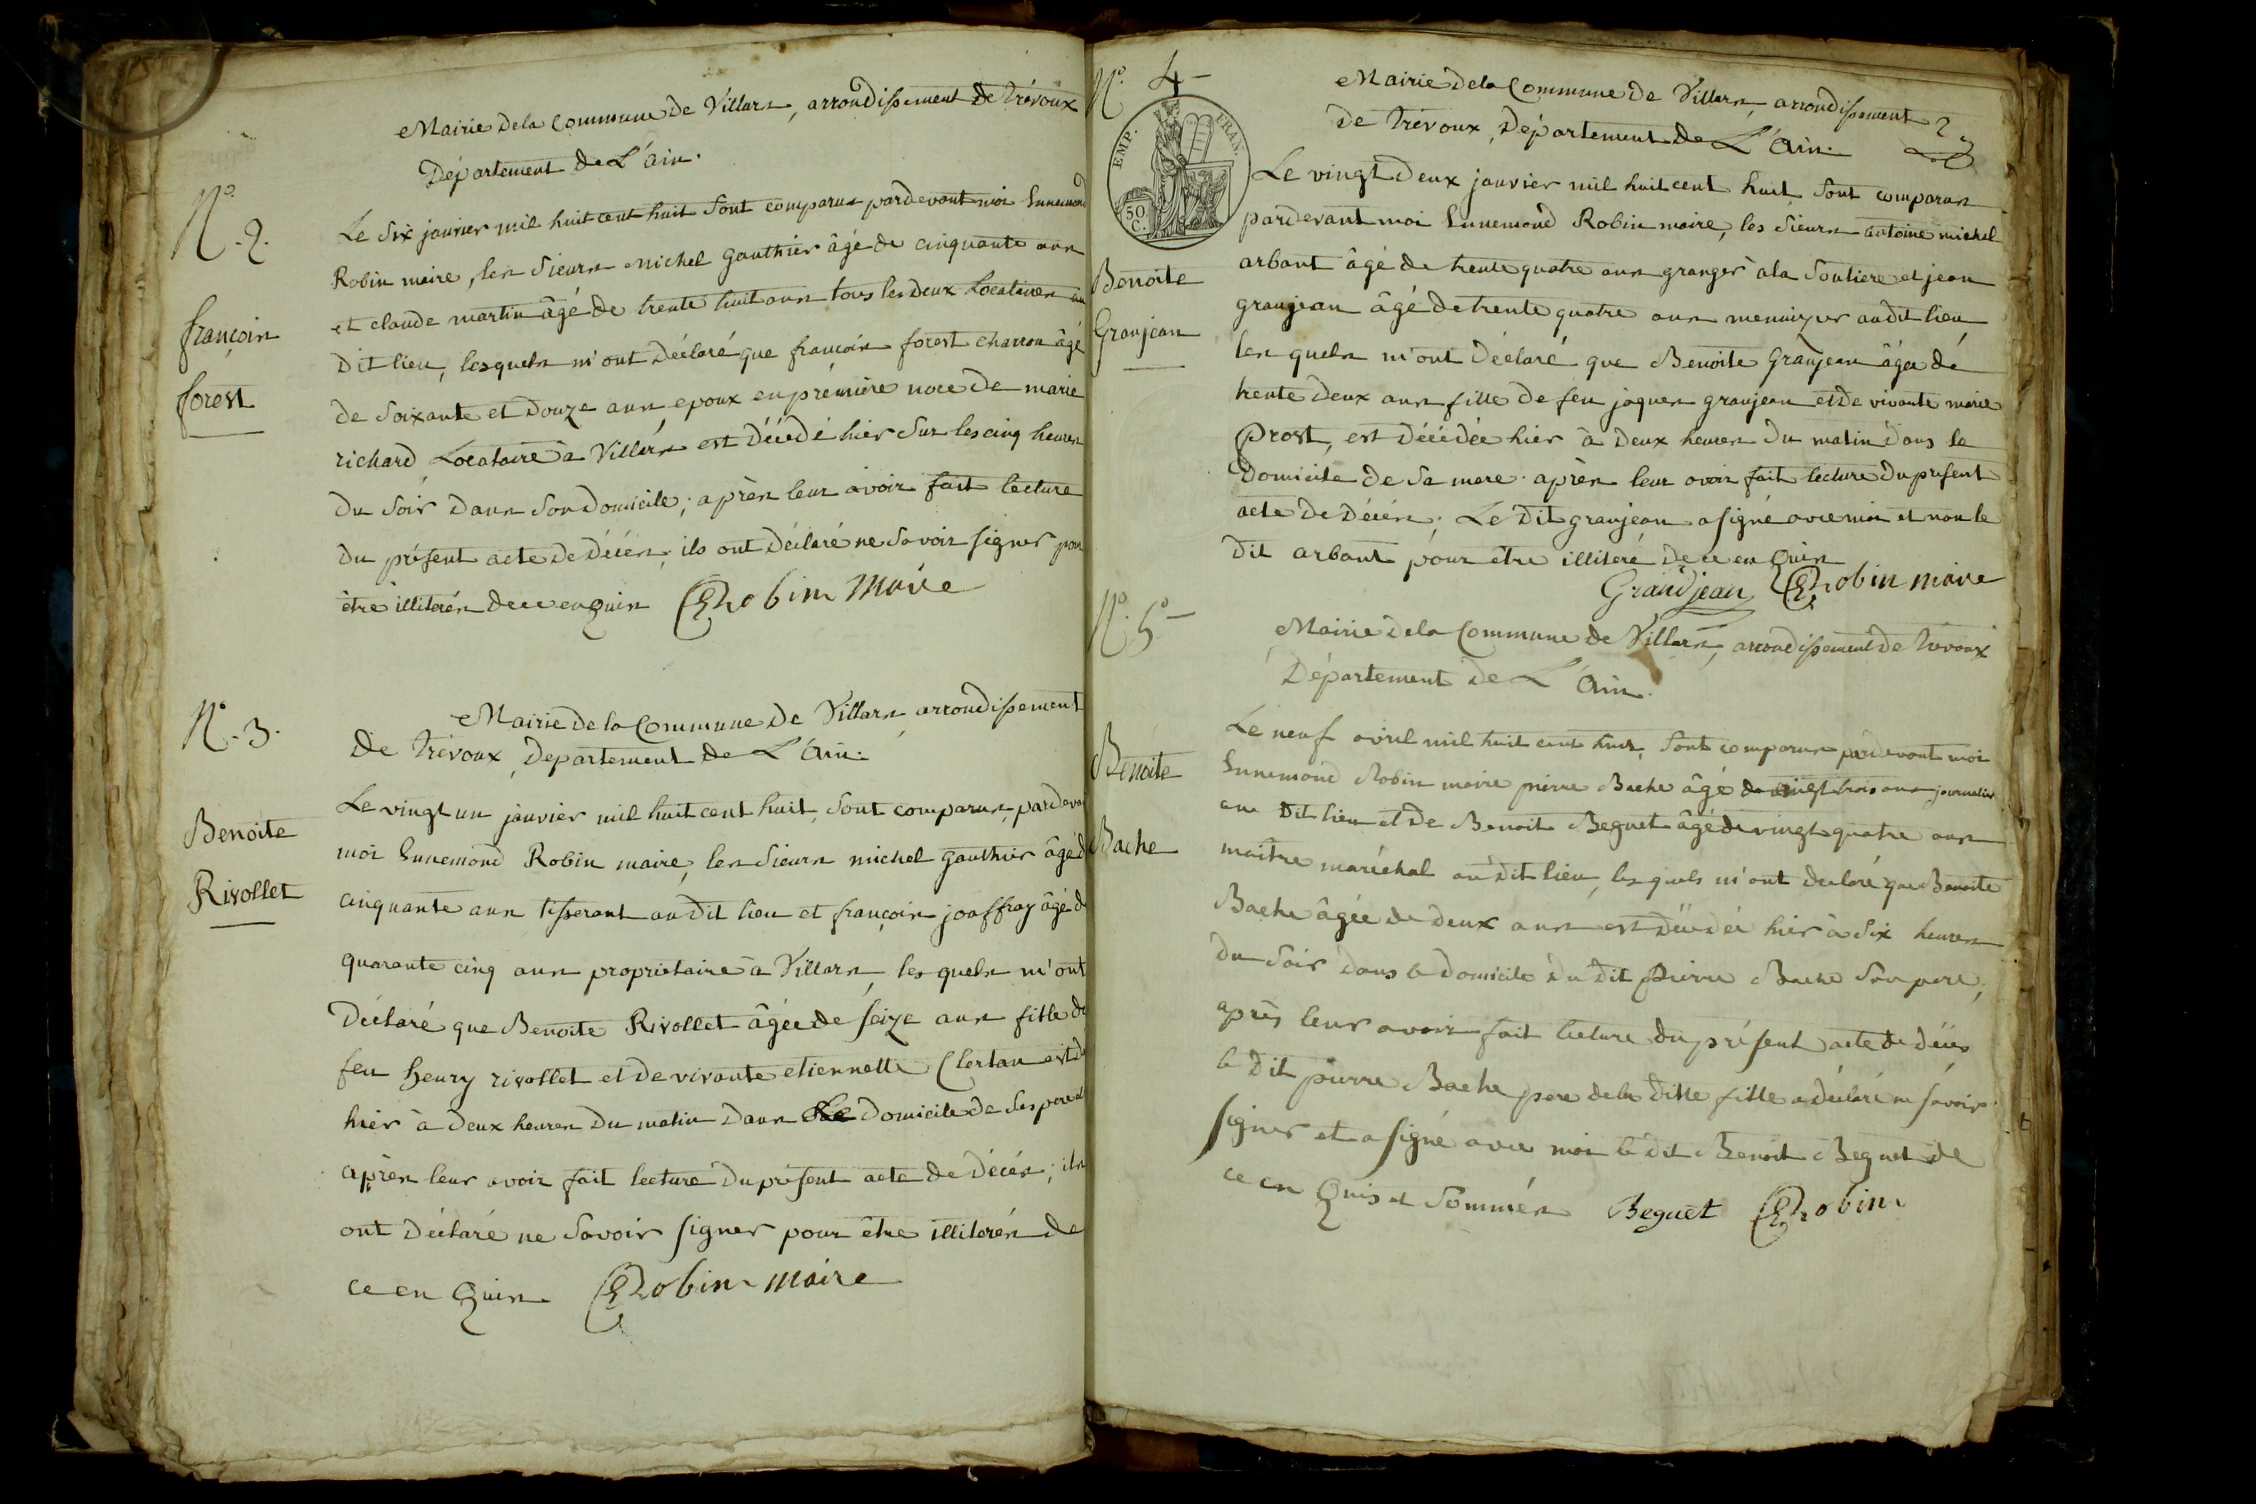 Mairie de la Commune de Villars, arrondissement de Trévoux
Département de L'Ain.
N.° 2.
françois
forest
Le Six janvier mil huit cent huit Sont comparus pardevant moi Ennemond
Robin maire, les Sieurs michel gauthier âgé de cinquante ans
et claude martin âgé de trente huit ans tous les deux Locataires au
dit lieu, lesquels m'ont déclaré que françois forest charron âgé
de Soixante et douze ans epoux en prémière noce de marie
richard Locataire à Villars est décédé hier Sur les cinq heures
du Soir dans Son domicile; après leur avoir fait lecture
du présent acte de décès, ils ont déclaré ne Savoir signer pour
être illiterés de ce enquis ERobin Maire
N.° 3.
Benoite
Rivollet
Mairie de la Commune de Villars arrondissement
de Trévoux, Departement de L'Ain.
Le vingt un janvier mil huit cent huit, Sont comparus, pardeva
moi Ennemond Robin maire, les Sieurs michel gauthier âgé d
cinquante ans tisserant au dit lieu et françois jouffray âgé d
quarante cinq ans propriétaire à Villars, les quels m'ont
déclaré que Benoite Rivollet âgée de seize ans fille de
feu henry rivollet et de vivante etiennette Clertan est d
hier à deux heures du matin dans Le domicile de Ses pere et
après leur avoir fait lecture du présent acte de décès; ils
ont déclaré ne Savoir signer pour être illiterés de
ce en Quis ERobin maire
N.° 4
EMP. FRAN.
50 C.
2
Benoite
Granjean
Mairie de la Commune de Villars, arrondissement
de Trévoux, Département de L'Ain.
Le vingt deux janvier mil huit cent huit Sont comparus
pardevant moi Ennemond Robin maire, les Sieurs antoine michel
arbant âgé de trente quatre ans granger à la Soutiere et jean
granjean âgé de trente quatre ans menuizier audit lieu
les quels m'ont déclaré que Benoite Granjean âgée de
trente deux ans fille de feu jaques granjean et de vivante marie
Prost, est décédée hier à deux heures du matin dans le
domicile de Sa mere. après leur avoir fait lecture du présent
acte de décès, Le dit granjean a signé avec moi et non le
dit arbant pour être illiteré de ce en Quis
Grandjean ERobin maire
N.° 5
Benoite
Bache
Mairie de la Commune de Villars, arrondissement de Trévoux
Département de L'Ain.
Le neuf avril mil huit cent huit, Sont comparus pardevant moi
Ennemond Robin maire pierre Bache âgé de vingt trois ans journalier
au dit lieu et de Benoit Beguet âgé de vingt quatre ans
maître maréchal au dit lieu, les quels m'ont declaré que Benoite
Bache âgée de deux ans est décédée hier à Six heures
du Soir dans le domicile du dit Pierre Bache Son pere,
après leur avoir fait lecture du présent acte de décès
le dit pierre Bache pere de la ditte fille a déclaré ne Savoir
signer et a signé avec moi le dit Benoit Beguet de
ce en Quis et Sommés Beguet ERobin